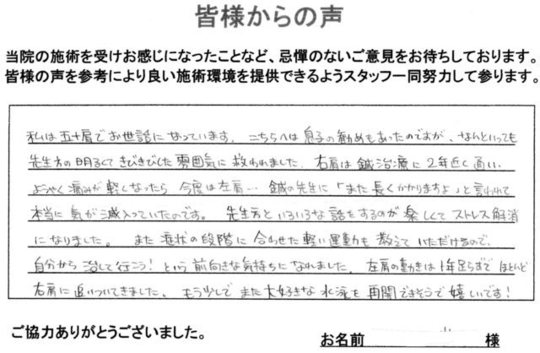 皆様からの声
当院の施術を受けお感じになったことなど、忌憚のないご意見をお待ちしております。
皆様の声を参考により良い施術環境を提供できるようスタッフ一同努力して参ります。
私は五十肩でお世話になっています。こちらへは息子の勧めもあったのですが、なんといっても
先生方の明るくてきびきびした雰囲気に救われました。右肩は鍼治療に2年近く通い
ようやく痛みが軽くなったら今度は左肩… 鍼の先生に「また長くかかりますよ」と言われて
本当に気が滅入っていたのです。先生方といろいろな話をするのが楽しくてストレス解消
になりました。また症状の段階に合わせた軽い運動も教えていただけるので、
自分から治して行こう！という前向きな気持ちになれました。左肩の動きは1年足らずでほとんど
右肩に追いついてきました。もう少しでまた大好きな水泳を再開できそうで嬉しいです！
ご協力ありがとうございました。
お名前 様